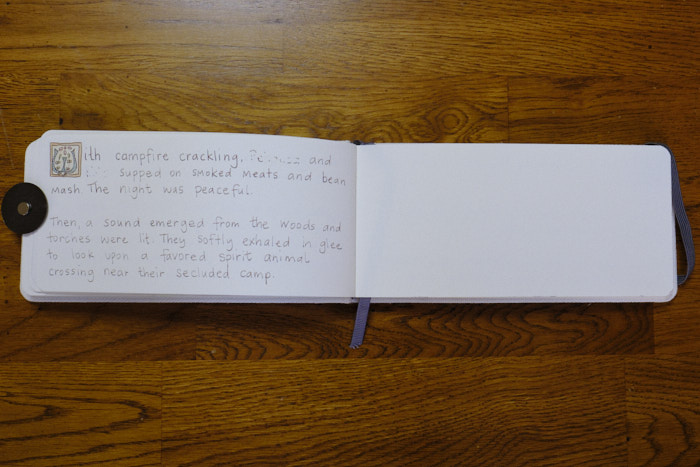 With campfire crackling, and
supped on smoked meats and bean
mash. The night was peaceful.
Then, a sound emerged from the woods and
torches were lit. They softly exhaled in glee
to look upon a favored spirit animal
crossing near their secluded camp.